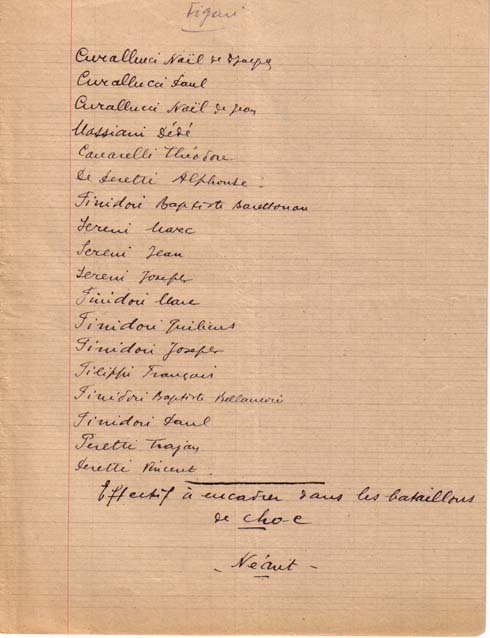 Figari
Curallucci Noël de Joseph
Curallucci Paul
Curallucci Noël de Jean
Massiani Dédé
Canarelli Théodore
De Peretti Alphonse
Finidori Baptiste
Sereni Marc
Sereni Jean
Sereni Joseph
Finidori Marc
Finidori Quilicus
Finidori Joseph
Filippi François
Finidori Baptiste
Finidori Paul
Peretti Trajan
Peretti Vincent
Effectif à encadrer dans les bataillons
de choc
- Néant -